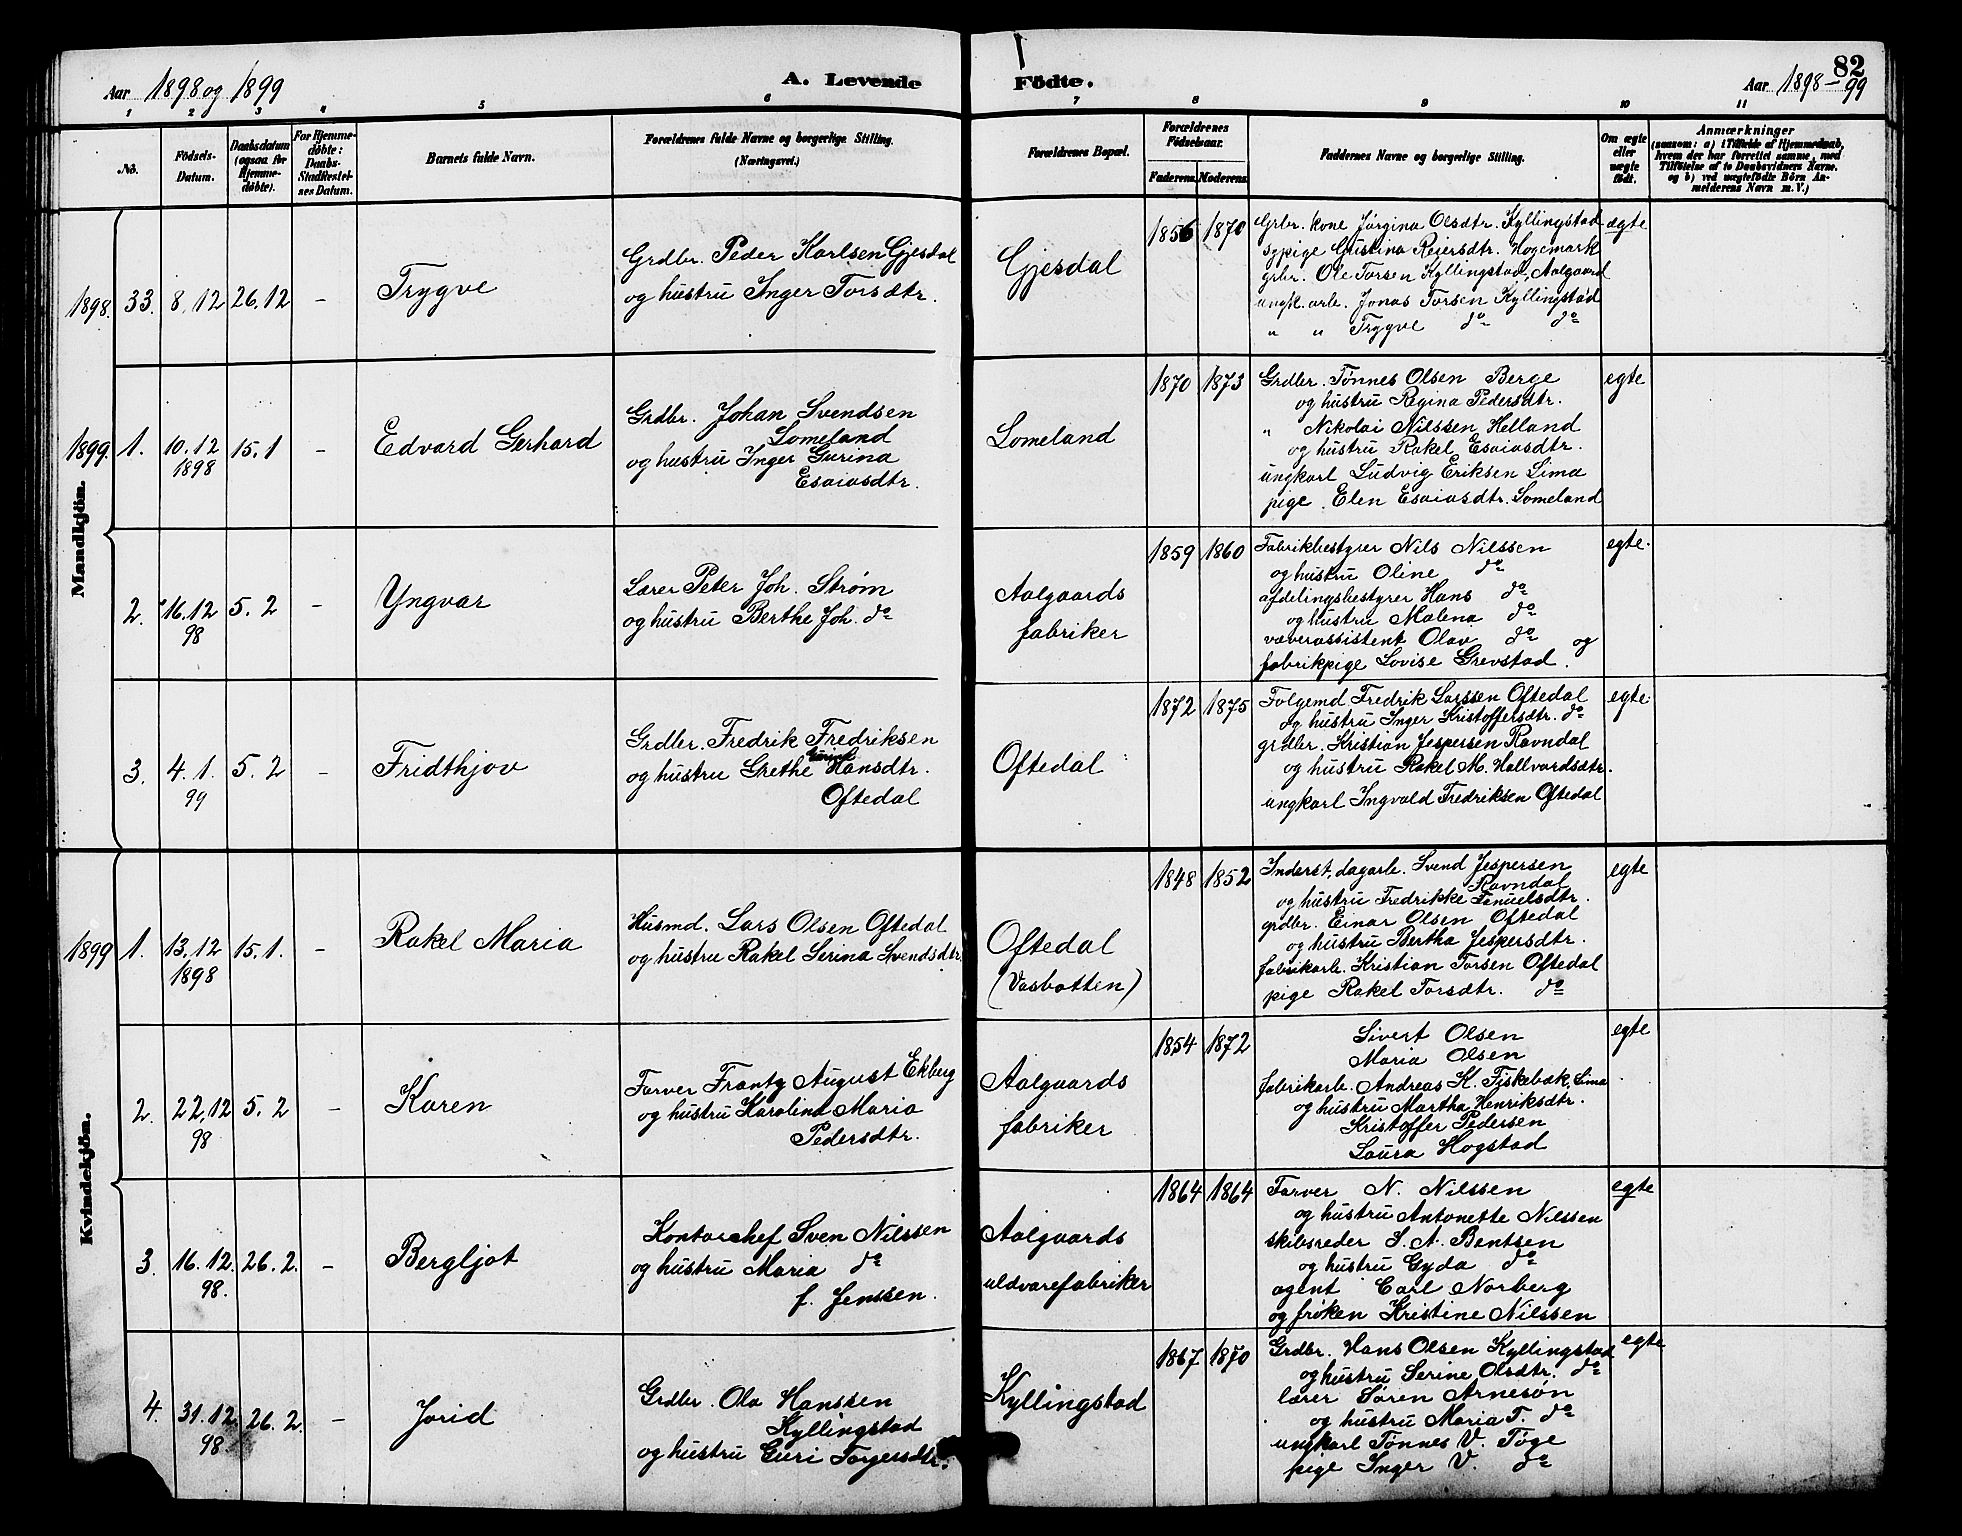 82
Aar 1898 og 1899
A. Levende
Födte.
Aar 1898–99
1 2 3 4 5 6 7 8 9 10 11
No.
Födsels-
Datum.
Daabsdatum
(ogsaa for
Hjemme-
døbte).
For Hjemme-
døbte:
Daabs-
Stadfæstel-
ses Datum.
Barnets fulde Navn.
Forældrenes fulde Navne og borgerlige Stilling.
(Næringsvei.)
Forældrenes Bopæl.
Forældrenes
Födselsaar.
Faderens. Moderens.
Faddernes Navne og borgerlige Stilling.
Om ægte
eller
uægte
födt.
Anmærkninger
(saasom: a) i Tilfælde af Hjemmedaab,
hvem der har forrettet samme, med
Tilföielse af to Daabsvidners Navne,
og b) ved uægtefödte Börn An-
melderens Navn m. V.)
Mandkjön.
1898. 33. 8.12 26.12 –
Trygve
Grdbr. Peder Karlsen Gjesdal
og hustru Inger Torsdtr.
Gjesdal
1856 1870
Grbr. kone Jørgina Olsdtr. Kyllingstad
sypige Gustina Reiersdtr. Hogemark
grbr. Ole Torsen Kyllingstad, Aalgaard
ungk. arb. Jonas Torsen Kyllingstad
" " Trygve do do
ægte
1899. 1. 10.12 15.1 –
1898
Edvard Gerhard
Grdbr. Johan Svendsen
Lomeland
og hustru Inger Gurina
Esaiasdtr.
Lomeland
1870 1873
Grdbr. Tønnes Olsen Berge
og hustru Regina Pedersdtr.
" Nikolai Nilssen Helland
og hustru Rakel Esaiasdtr.
ungkarl Ludvig Eriksen Lima
pige Elen Esaiasdtr. Lomeland
egte
2. 16.12 5.2 –
98
Yngvar
Lærer Peter Joh. Strøm
og hustru Berthe Joh. do
Aalgaards
fabriker
1859 1860
Fabrikbestyrer Nils Nilssen
og hustru Oline do
afdelingsbestyrer Hans do
og hustru Malena do
væverassistent Olav do og
fabrikpige Lovise Grevstad.
egte.
3. 4.1. 5.2 –
99
Fridthjov
Grdbr. Fredrik Fredriksen
og hustru Grethe Hansdtr.
Oftedal
Oftedal
1872 1875
Folgemd. Fredrik Larssen Oftedal
og hustru Inger Kristoffersdtr. do
grdbr. Kristian Jespersen Ravndal
og hustru Rakel M. Hallvardsdtr.
ungkarl Ingvald Fredriksen Oftedal
egte.
Kvindekjön.
1899 1. 13.12 15.1. –
1898
Rakel Maria
Husmd. Lars Olsen Oftedal
og hustru Rakel Serina Svendsdtr.
Oftedal
(Vasbotten)
1848 1852
Inderst, dagarb. Svend Jespersen
Ravndal
og hustru Fredrikke Fanuelsdtr.
grdbr. Einar Olsen Oftedal
og hustru Bertha Jespersdtr.
fabrikarb. Kristian Torsen Oftedal
pige Rakel Torsdtr. do
egte
2. 22.12 5.2 –
98
Karen
Farver Frantz August Ekberg
og hustru Karolina Maria
Pedersdtr.
Aalgaards
fabriker
1854 1872
Sivert Olsen
Maria Olsen
fabrikarb. Andreas K. Fiskebæk, Lima
og hustru Martha Henriksdtr.
Kristoffer Pedersen
Laura Hogstad
egte
3. 16.12. 26.2. –
98.
Bergljot
Kontorchef Sven Nilssen
og hustru Maria do
f. Jenssen.
Aalgaards
uldvarefabriker
1864 1864
Farver N. Nilssen
og hustru Antonette Nilssen
skibsreder S. A. Bentsen
og hustru Gyda do
agent Carl Norberg
og frøken Kristine Nilssen
egte
4. 31.12. 26.2. –
98.
Jorid
Grdbr. Ola Hanssen
Kyllingstad
og hustru Guri Torgersdtr.
Kyllingstad
1867 1870
Grdbr. Hans Olsen Kyllingstad
og hustru Serine Olsdtr. do
lærer Søren Arnesøn
og hustru Maria T. do
ungkarl Tønnes V. Tøge
pige Inger V. do
egte